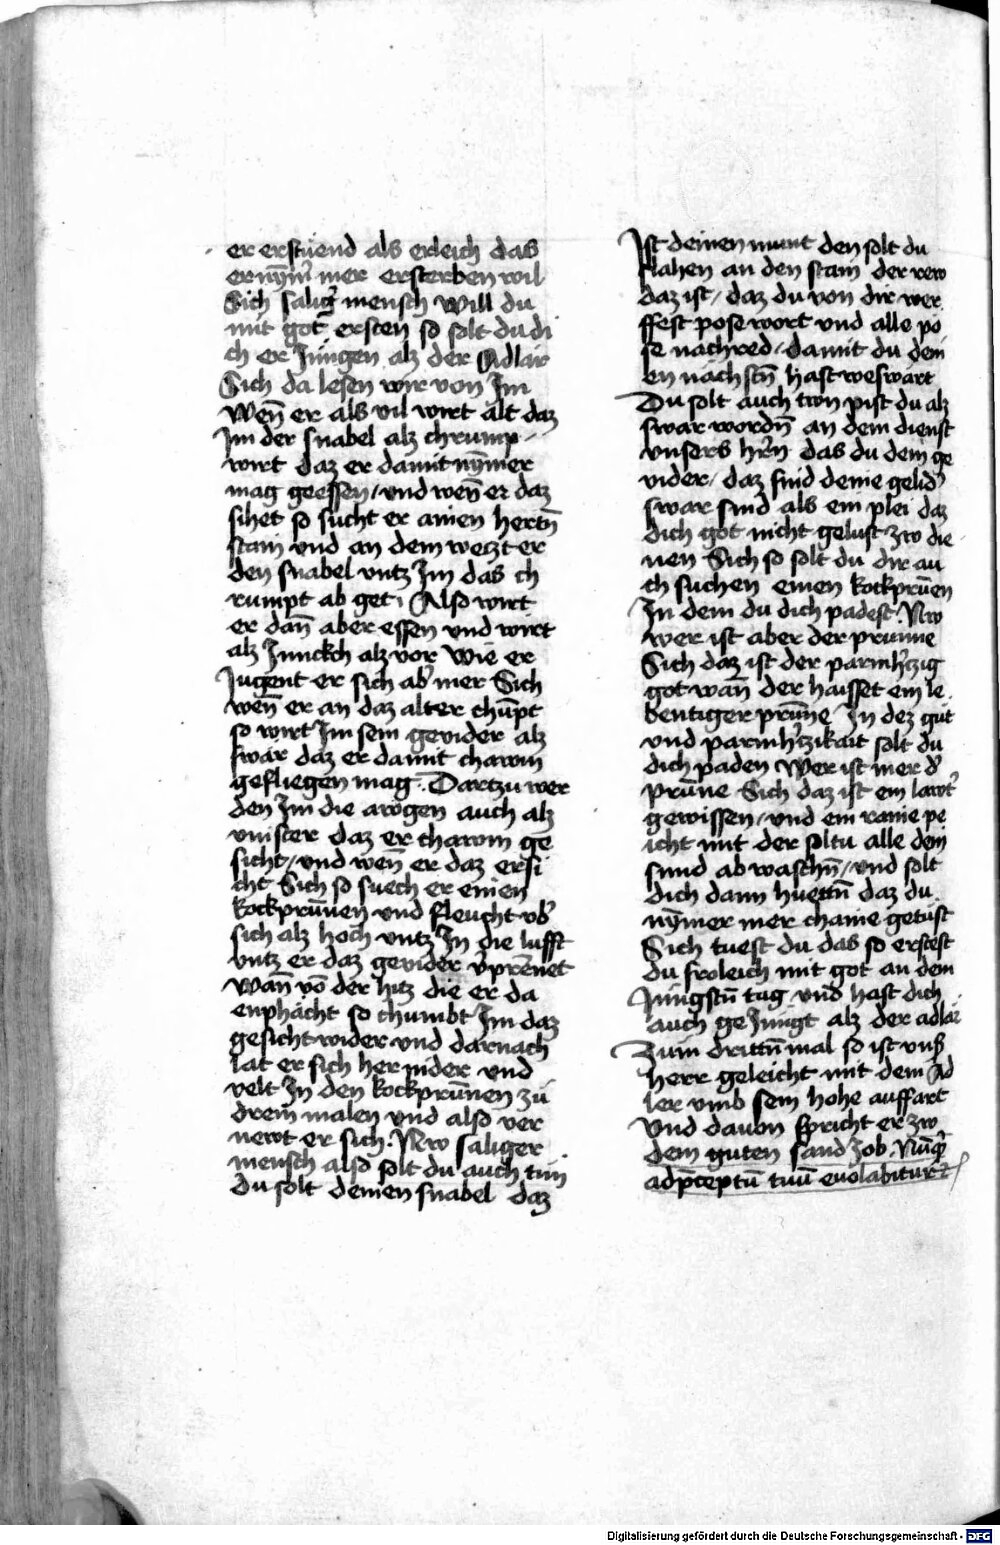 er erstuend als erleich das
er nȳm̄ mer ersterben wil
Sich salig mensch will du
mit got ersten so solt du di
ch er Jungen alz der Adlar
Sich da lesen wir von Jm
wen̄ er als vil wirt alt daz
Jm der snabel alz chrump
wirt daz er damit nȳmer
mag geessen / vnd wen̄ er daz
sihet so sucht er ainen hertn̄
stain vnd an dem weczt er
den snabel vntz Jm das ch
rumpt ab get, Also wirt
er dan̄ aber essen vnd wirt
alz Junckch alz vor wie er
Jugent er sich ab' mer Sich
wen̄ er an daz alter chūpt
so wirt Jm sein gevider alz
swar daz er damit chawm
gefliegen mag. Dartzu wer
den Jm die awgen auch alz
vinster daz er chawm ge
sicht / vnd wen̄ er daz ersi
cht Sich so suech er einen
kockprūnen vnd fleucht vb'
sich alz hoch vntz Jn die lufft
vntz er daz gevider v'prēnet
wan̄ vō der hitz die er da
enphächt so chumbt Jm daz
gesicht wider vnd darnach
lat er sich her nider vnd
velt Jn den kockprūnen zu
drein malen vnd also ver
newt er sich. New saliger
mensch also solt du auch tun
du solt deinen snabel daz
Jst deinen munt den solt du
slahen an den stain der rew
daz ist / daz du von dir wer
ffest pose wort vnd alle po
se nachred / damit du dein
en nachstn̄ hast weswart
Du solt auch twn pist du alz
swar wordn̄ an dem dienst
vnsers hr̄n das du dein ge
vider / daz sind deine gelid'
swar sind als ein plei daz
dich got nicht gelust zw die
nen Sich so solt du dir au
ch suchen einen kockprūen
Jn dem du dich padest. Nw
wer ist aber der prunne
Sich daz ist der parmh'tzig
got wan̄ der haisset ein le
bentiger prūne Jn dez gut
vnd parmh'tzikait solt du
dich paden wer ist mer d'
prūne Sich daz ist ein lawt'
gewissen / vnd ein raine pe
icht mit der soltu alle dein
sund ab waschn̄ / vnd solt
dich dann huettn̄ daz du
nȳmer mer chaine getust
Sich tuest du das so erstest
du froleich mit got an dem
Jungstn̄ tag vnd hast dich
auch ge Jungt alz der adlar
Zum drittn̄ mal so ist vns'
herr geleicht mit dem Ad
ler vmb sein hohe auffart
Vnd dauon spricht er zw
dem guten sand Job. Nūq'
ad p̄ceptū tuū euolabitur
Digitalisierung gefördert durch die Deutsche Forschungsgemeinschaft - DFG